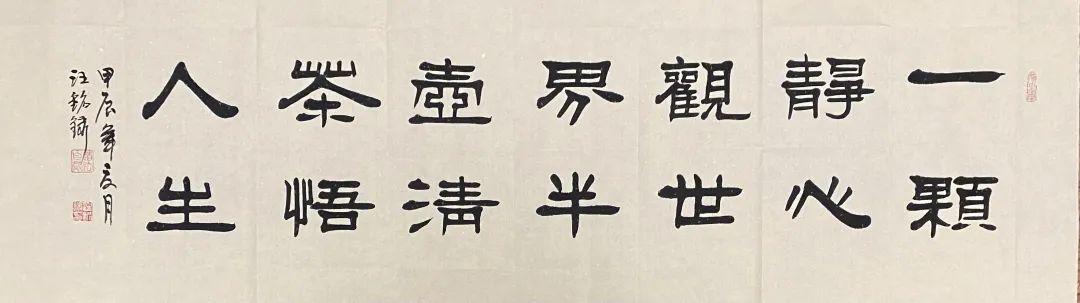 一顆
靜心
觀世
界半
壺清
茶悟
人生
甲辰年夏月
汪銘